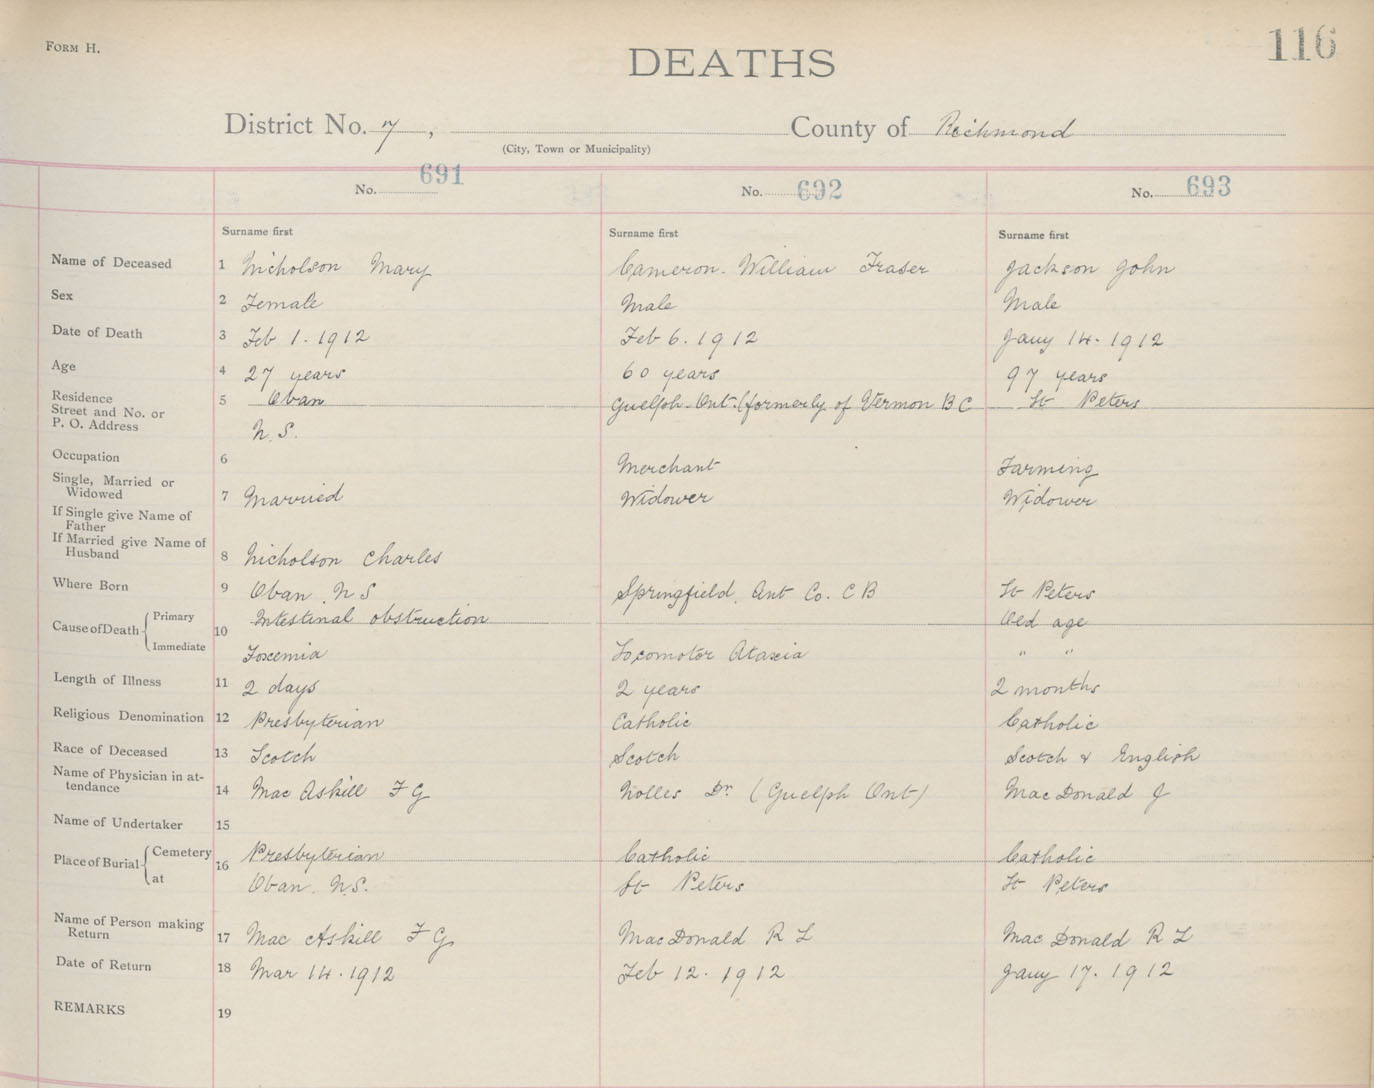 FORM H.
116
DEATHS
District No. 7, County of Richmond
(City, Town or Municipality)
No. 691 No. 692 No. 693
Surname first Surname first Surname first
Name of Deceased 1 Nicholson Mary Cameron. William Fraser Jackson John
Sex 2 Female Male Male
Date of Death 3 Feb 1. 1912 Feb 6. 1912 Jany 14. 1912
Age 4 27 years 60 years 97 years
Residence
Street and No. or
P. O. Address 5 Oban Guelph Ont. (formerly of Vermon B C St Peters
N. S.
Occupation 6 Merchant Farming
Single, Married or
Widowed 7 Married Widower Widower
If Single give Name of
Father
If Married give Name of
Husband 8 Nicholson Charles
Where Born 9 Oban. N S Springfield. Ant Co. C B St Peters
Cause of Death 10 Primary Intestinal obstruction Old age
Immediate Toxemia Locomotor Ataxia " "
Length of Illness 11 2 days 2 years 2 months
Religious Denomination 12 Presbyterian Catholic Catholic
Race of Deceased 13 Scotch Scotch Scotch & English
Name of Physician in at-
tendance 14 Mac Askill F G Nolles Dr. (Guelph Ont) MacDonald J
Name of Undertaker 15
Place of Burial 16 Cemetery Presbyterian Catholic Catholic
at Oban. N.S. St Peters St Peters
Name of Person making
Return 17 Mac Askill F G MacDonald R L Mac Donald R L
Date of Return 18 Mar 14. 1912 Feb 12. 1912 Jany 17. 1912
REMARKS 19